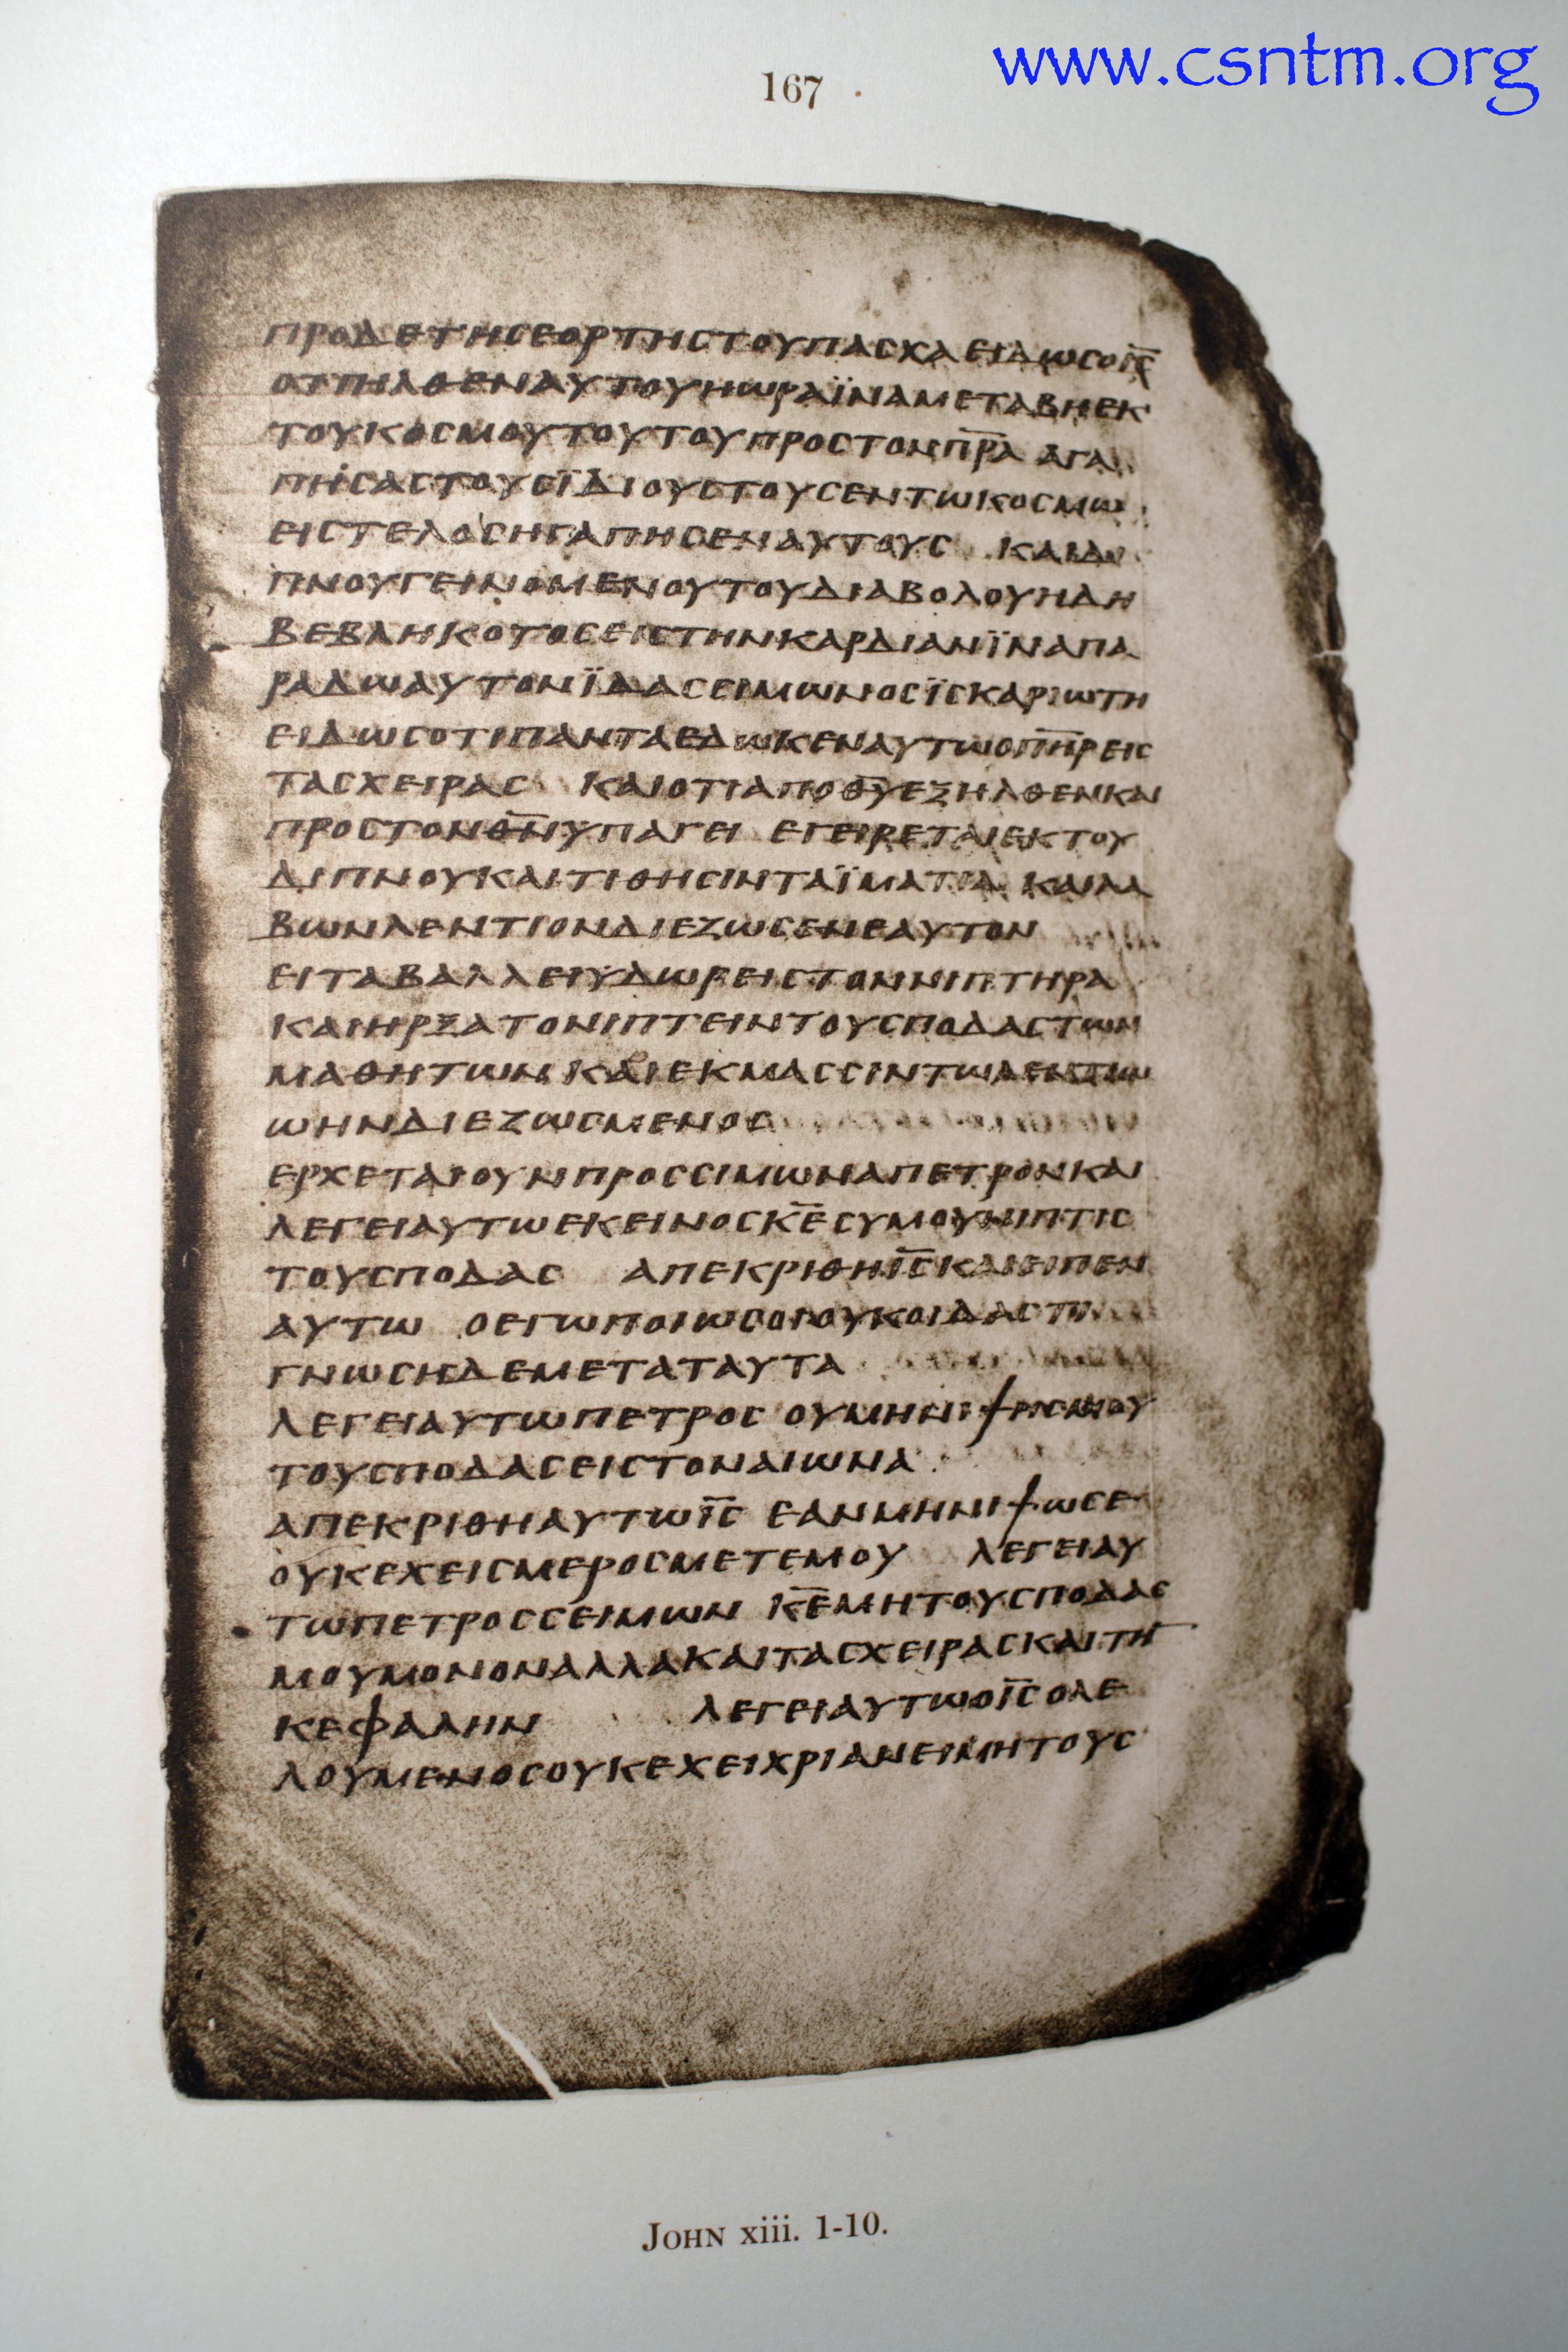 167
www.csntm.org
ΠΡΟΔΕΤΗCΕΟΡΤΗCΤΟΥΠΑCΧΑ ΕΙΔΩCΟΙ̅C̅
ΟΤΙΗΛΘΕΝΑΥΤΟΥΗΩΡΑΪΝΑΜΕΤΑΒΗΕΚ
ΤΟΥΚΟCΜΟΥΤΟΥΤΟΥΠΡΟCΤΟΝΠ̅Ρ̅Α̅ ΑΓΑ
ΠΗCΑCΤΟΥCΪΔΙΟΥCΤΟΥCΕΝΤΩΚΟCΜΩ
ΕΙCΤΕΛΟCΗΓΑΠΗCΕΝΑΥΤΟΥC ΚΑΙΔΙ
ΠΝΟΥΓΕΙΝΟΜΕΝΟΥΤΟΥΔΙΑΒΟΛΟΥΗΔΗ
ΒΕΒΛΗΚΟΤΟCΕΙCΤΗΝΚΑΡΔΙΑΝΪΝΑΠΑ
ΡΑΔΩΑΥΤΟΝΪΔΑCCΙΜΩΝΟCΪCΚΑΡΙΩΤΗ
ΕΙΔΩCΟΤΙΠΑΝΤΑΕΔΩΚΕΝΑΥΤΩΟΠ̅Η̅Ρ̅ΕΙC
ΤΑCΧΕΙΡΑC ΚΑΙΟΤΙΑΠΟΘ̅Υ̅ΕΞΗΛΘΕΝΚΑΙ
ΠΡΟCΤΟΝΘ̅Ν̅ΥΠΑΓΕΙ ΕΓΕΙΡΕΤΑΙΕΚΤΟΥ
ΔΙΠΝΟΥΚΑΙΤΙΘΗCΙΝΤΑΪΜΑΤΙΑ ΚΑΙΛΑ
ΒΩΝΛΕΝΤΙΟΝΔΙΕΖΩCΕΝΕΑΥΤΟΝ
ΕΙΤΑΒΑΛΛΕΙΥΔΩΡΕΙCΤΟΝΝΙΠΤΗΡΑ
ΚΑΙΗΡΞΑΤΟΝΙΠΤΕΙΝΤΟΥCΠΟΔΑCΤΩΝ
ΜΑΘΗΤΩΝ ΚΑΙΕΚΜΑCCΙΝΤΩΛΕΝΤΙΩ
ΩΗΝΔΙΕΖΩCΜΕΝΟC
ΕΡΧΕΤΑΙΟΥΝΠΡΟCCΙΜΩΝΑΠΕΤΡΟΝΚΑΙ
ΛΕΓΕΙΑΥΤΩΕΚΕΙΝΟCΚ̅Ε̅CΥΜΟΥΝΙΠΤΙC
ΤΟΥCΠΟΔΑC ΑΠΕΚΡΙΘΗΙ̅C̅ΚΑΙΕΙΠΕΝ
ΑΥΤΩ ΟΕΓΩΠΟΙΩCΟΙΟΥΚΟΙΔΑCΑΡΤΙ
ΓΝΩCΗΔΕΜΕΤΑΤΑΥΤΑ
ΛΕΓΕΙΑΥΤΩΠΕΤΡΟC ΟΥΜΗΝΙΨΗCΜΟΥ
ΤΟΥCΠΟΔΑCΕΙCΤΟΝΑΙΩΝΑ
ΑΠΕΚΡΙΘΗΑΥΤΩΙ̅C̅ ΕΑΝΜΗΝΙΨΩCΕ
ΟΥΚΕΧΕΙCΜΕΡΟCΜΕΤΕΜΟΥ ΛΕΓΕΙΑΥ
ΤΩΠΕΤΡΟCCΕΙΜΩΝ Κ̅Ε̅ΜΗΤΟΥCΠΟΔΑC
ΜΟΥΜΟΝΟΝΑΛΛΑΚΑΙΤΑCΧΕΙΡΑCΚΑΙΤΗ̅
ΚΕΦΑΛΗΝ ΛΕΓΕΙΑΥΤΩΟΙ̅C̅ΟΛΕ
ΛΟΥΜΕΝΟCΟΥΚΕΧΕΙΧΡΙΑΝΕΙΜΗΤΟΥC
JOHN xiii. 1-10.